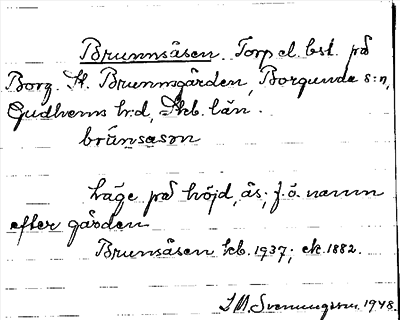 Brunnsåsen. Torp el. bst. på
Borg. St. Brunnsgården, Borgunda s:n,
Gudhems hrd, Skb. län.
brünsåsən
Läge på höjd, ås; f.ö. namn
efter gården
Brunsåsen kb. 1937; ek. 1882.
Svenungsson 1948.